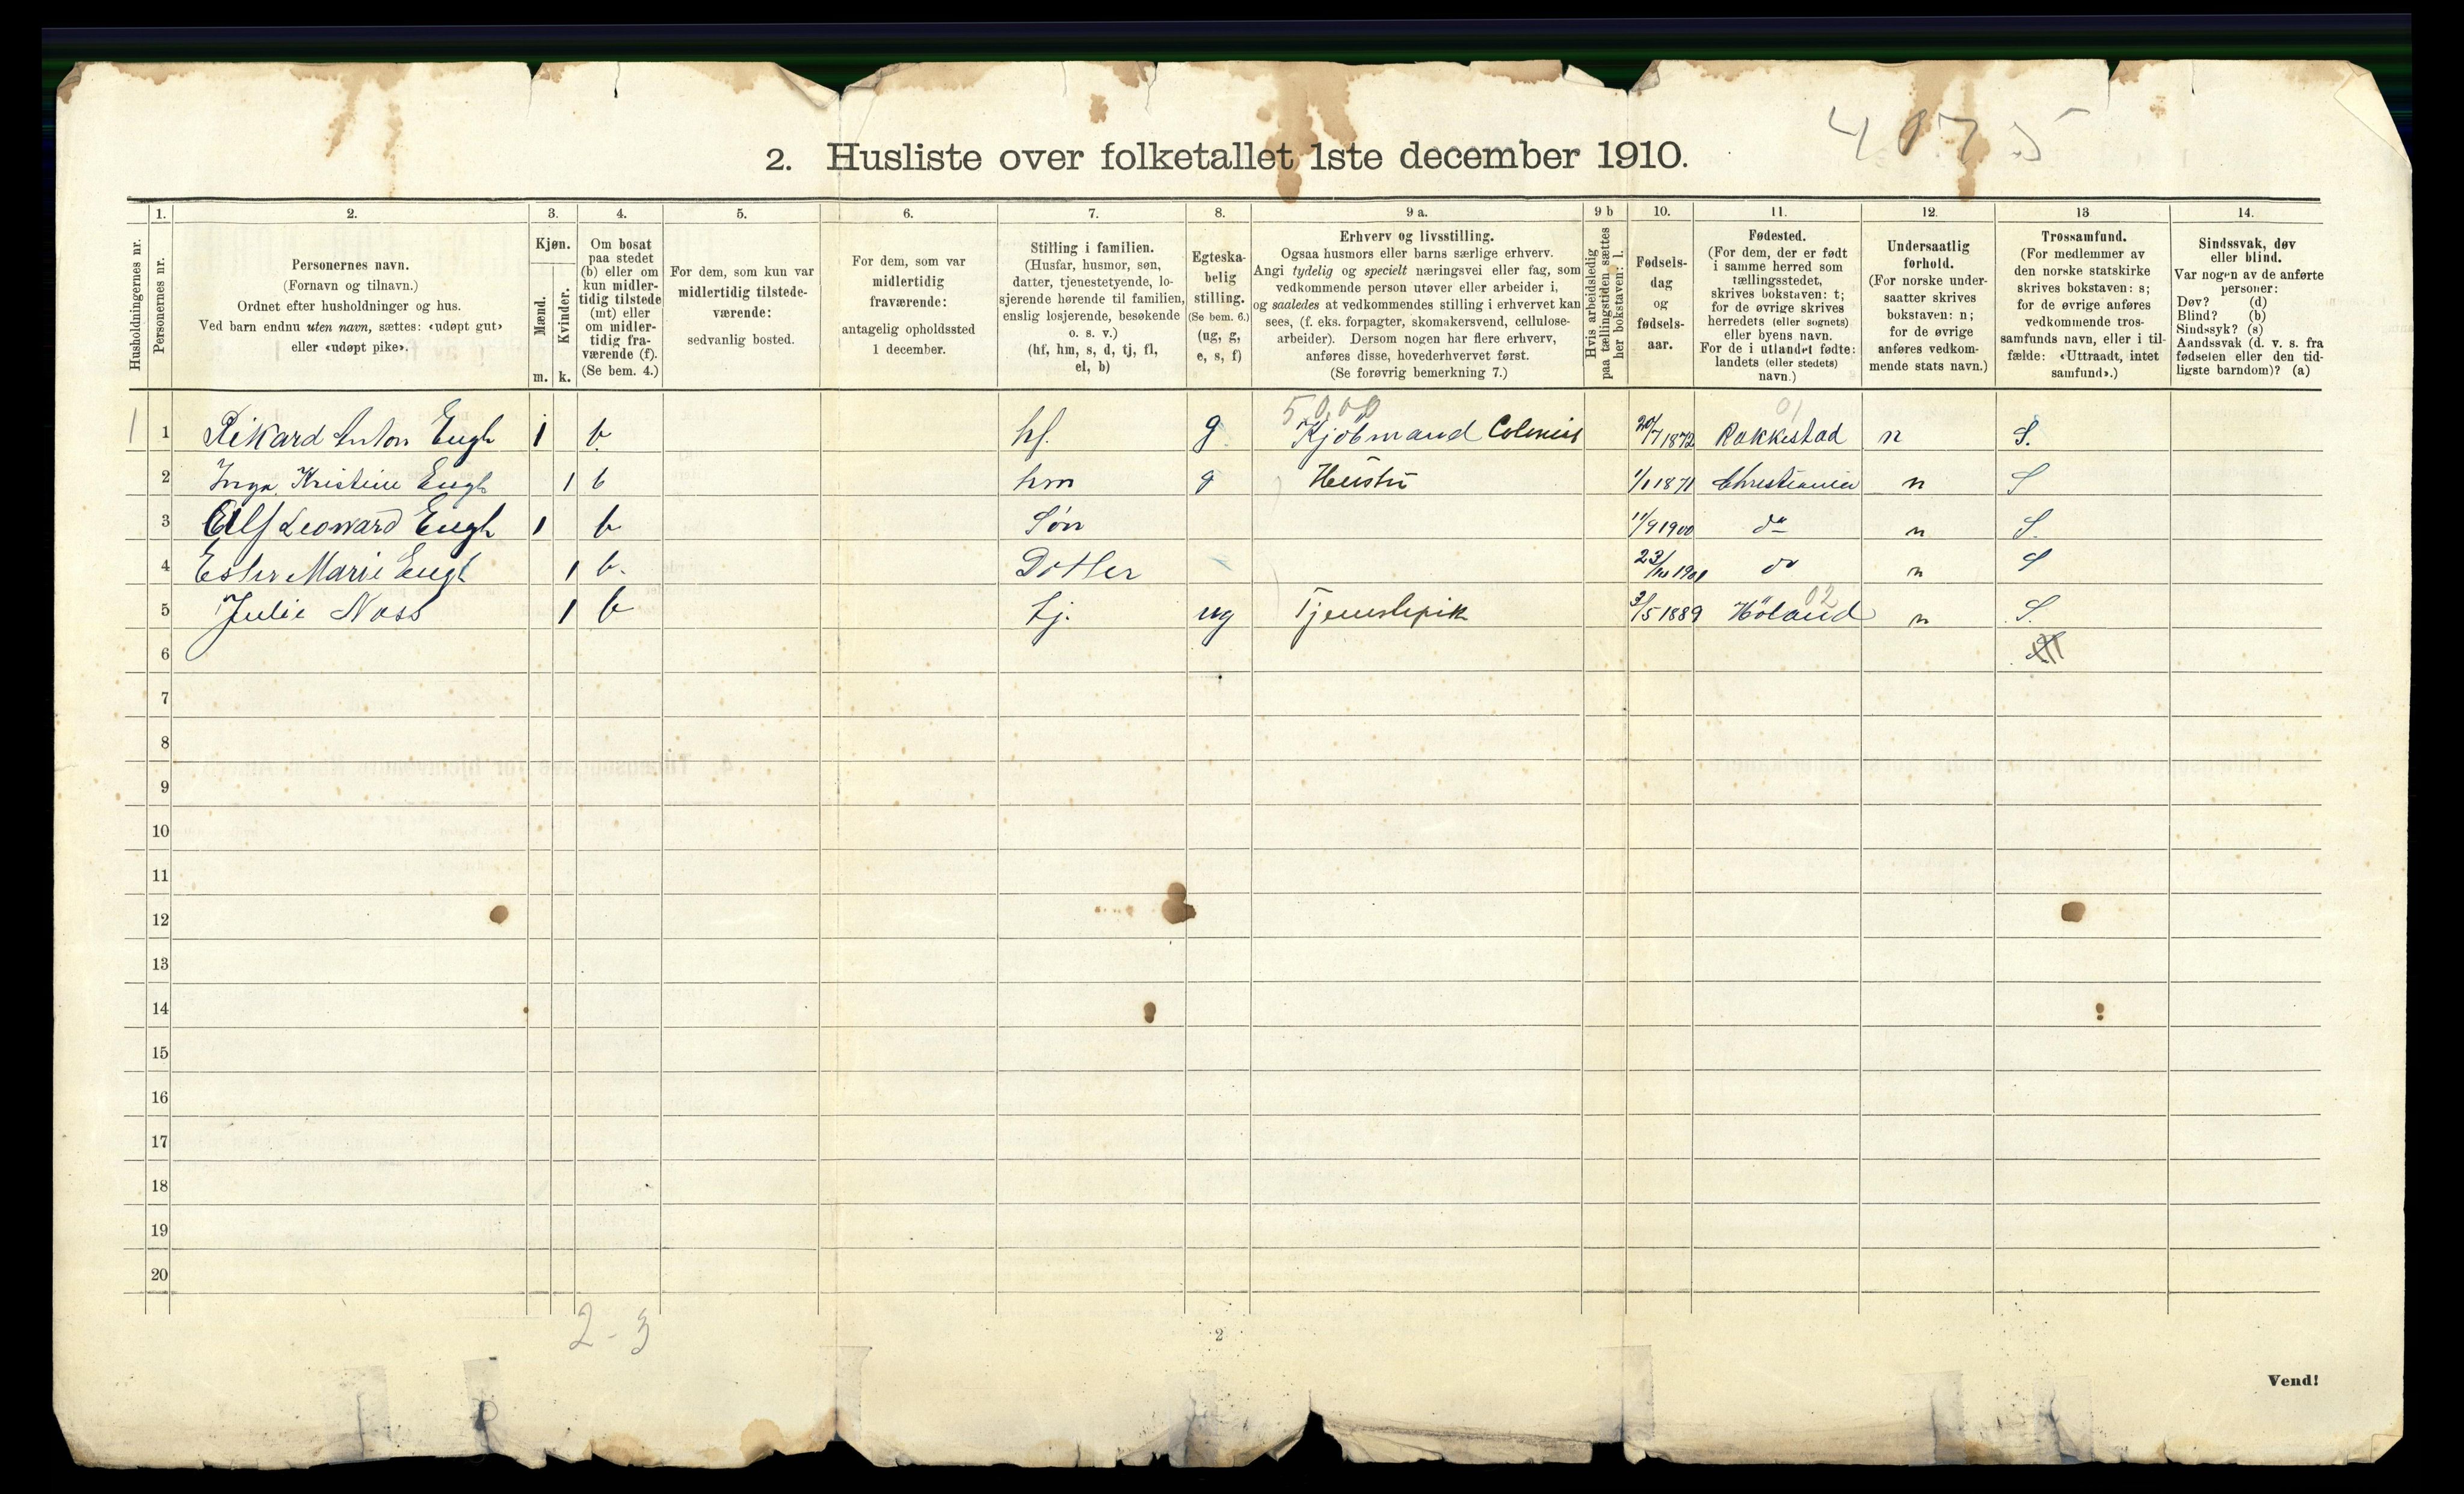 4075
2. Husliste over folketallet 1ste december 1910.
1. 2. 3. 4. 5. 6. 7. 8. 9 a. 9 b 10. 11. 12. 13 14.
Husholdningernes nr.
Personernes nr.
Personernes navn.
(Fornavn og tilnavn.)
Ordnet efter husholdninger og hus.
Ved barn endnu uten navn, sættes: «udøpt gut»
eller «udøpt pike».
Kjøn.
Mænd.
Kvinder.
m. k.
Om bosat
paa stedet
(b) eller om
kun midler-
tidig tilstede
(mt) eller
om midler-
tidig fra-
værende (f).
(Se bem. 4.)
For dem, som kun var
midlertidig tilstede-
værende:
sedvanlig bosted.
For dem, som var
midlertidig
fraværende:
antagelig opholdssted
1 december.
Stilling i familien.
(Husfar, husmor, søn,
datter, tjenestetyende, lo-
sjerende hørende til familien,
enslig losjerende, besøkende
o. s. v.)
(hf, hm, s, d, tj, fl,
el, b)
Egteska-
belig
stilling.
(Se bem. 6.)
(ug, g,
e, s, f)
Erhverv og livsstilling.
Ogsaa husmors eller barns særlige erhverv.
Angi tydelig og specielt næringsvei eller fag, som
vedkommende person utøver eller arbeider i,
og saaledes at vedkommendes stilling i erhvervet kan
sees, (f. eks. forpagter, skomakersvend, cellulose-
arbeider). Dersom nogen har flere erhverv,
anføres disse, hovederhvervet først.
(Se forøvrig bemerkning 7.)
Hvis arbeidsledig
paa tællingstiden, sættes
her bokstaven: l.
Fødsels-
dag
og
fødsels-
aar.
Fødested.
(For dem, der er født
i samme herred som
tællingsstedet,
skrives bokstaven: t;
for de øvrige skrives
herredets (eller sognets)
eller byens navn.
For de i utlandet fødte:
landets (eller stedets)
navn.)
Undersaatlig
forhold.
(For norske under-
saatter skrives
bokstaven: n;
for de øvrige
anføres vedkom-
mende stats navn.)
Trossamfund.
(For medlemmer av
den norske statskirke
skrives bokstaven: s;
for de øvrige anføres
vedkommende tros-
samfunds navn, eller i til-
fælde: «Uttraadt, intet
samfund».)
Sindssvak, døv
eller blind.
Var nogen av de anførte
personer:
Døv? (d)
Blind? (b)
Sindssyk? (s)
Aandssvak (d. v. s. fra
fødselen eller den tid-
ligste barndom)? (a)
5000 01
1 1 Rikard Anton Engh 1 b. hf. g Kjöbmand 20/7 1872 Rakkestad n S.
2 Inga Kristine Engh 1 b hm g Hustru 1/1 1871 Christiania n S
3 Alf Leonard Engh 1 b Sön 11/9 1900 do n S.
4 Ester Marie Engh 1 b. Dotter do n S
02
5 Julie Noss 1 b tj. ug Tjenestepik 3/5 1889 Höland n S.
6
7
8
9
10
11
12
13
14
15
16
17
18
19
20
2 - 3
2
Vend!